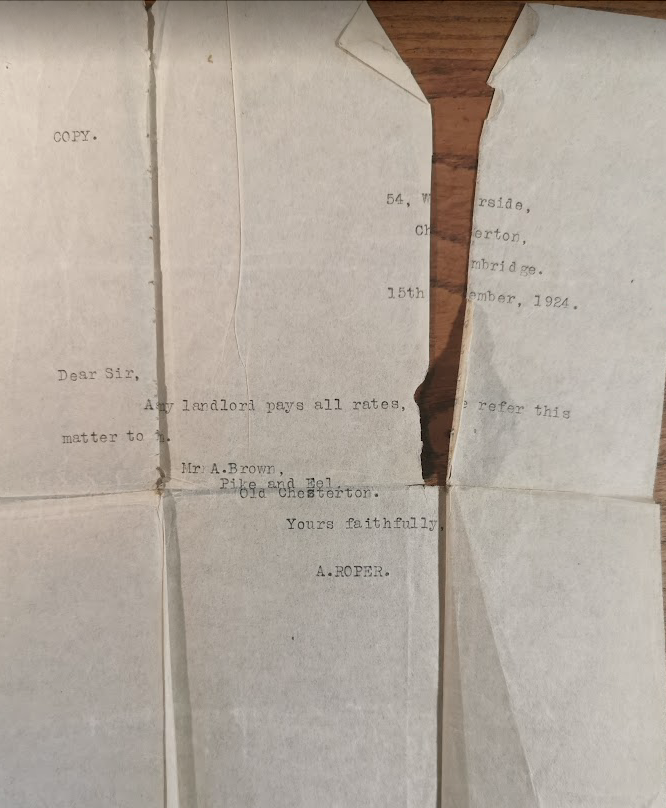 COPY.
54,
rside,
erton,
mbridge.
15th ember, 1924.
Dear Sir,
landlord pays all rates, refer this
matter to
Mr. A.Brown,
Pike and Eel,
Old Chesterton.
Yours faithfully,
A.ROPER.